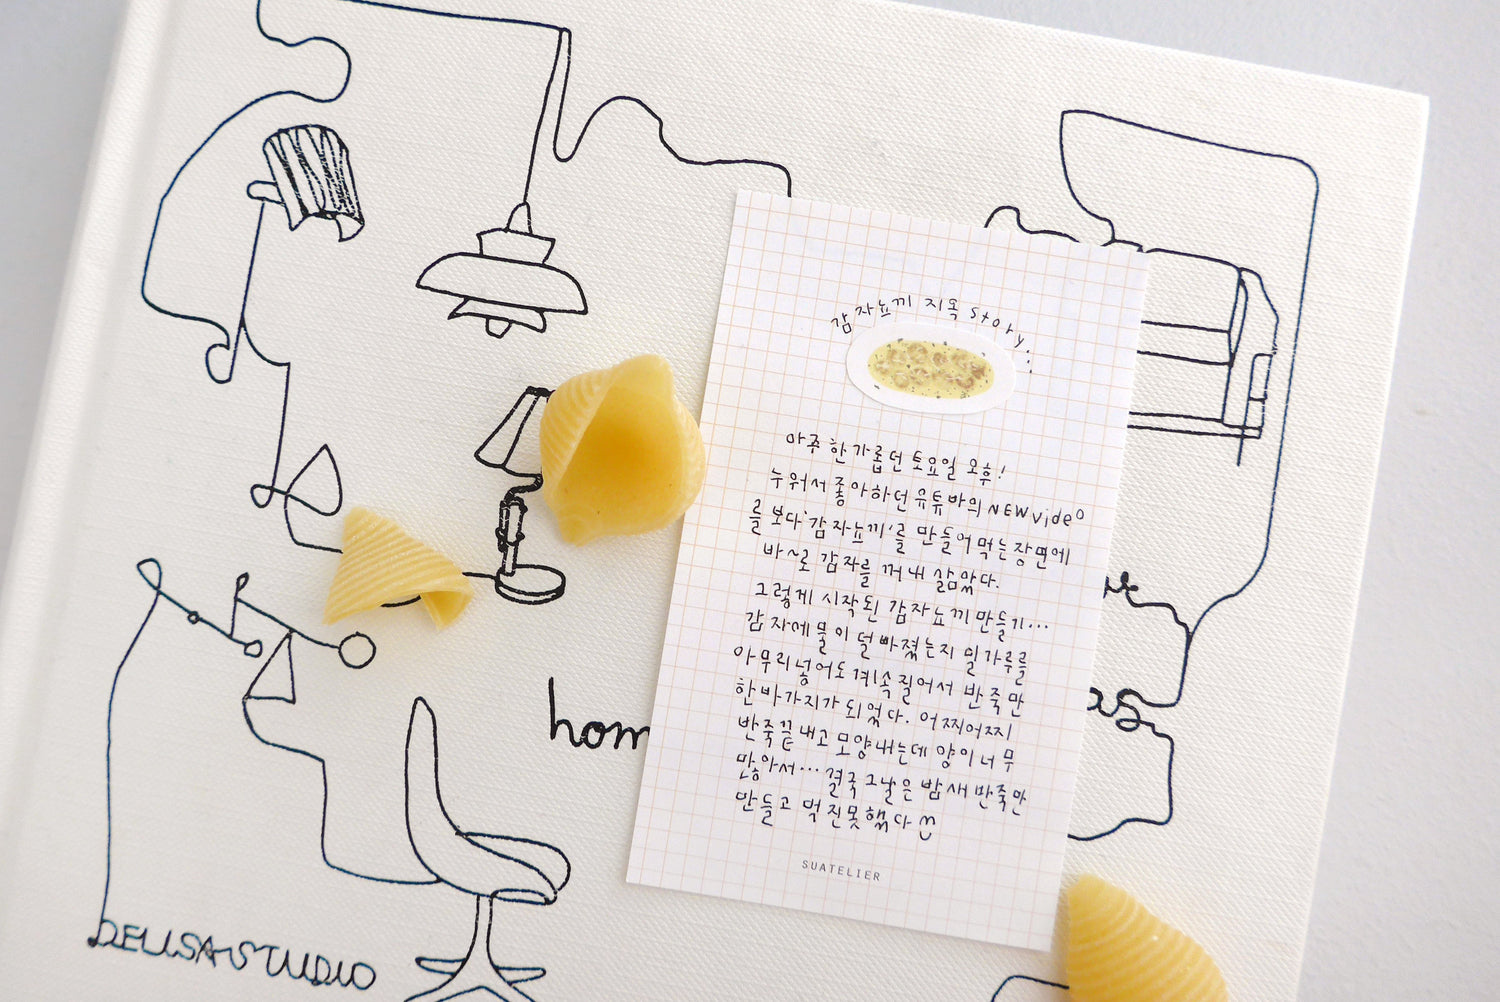 감자뇨끼 지옥 story...
아주 한가롭던 토요일 오후!
누워서 좋아하던 유튜바의 NEW video
를 보다 '감자뇨끼'를 만들어먹는장면에
바~로 감자를 꺼내 삶았다.
그렇게 시작된 감자뇨끼만들기...
감자에물이 덜빠졌는지 밀가루를
아무리넣어도 계속질어서 반죽만
한바가지가 되었다. 어찌어찌
반죽끝내고 모양내는데 양이너무
많아서... 결국 그날은 밤새 반죽만
만들고 먹진못했다
SUATELIER
hom
as
DELLSASTUDIO